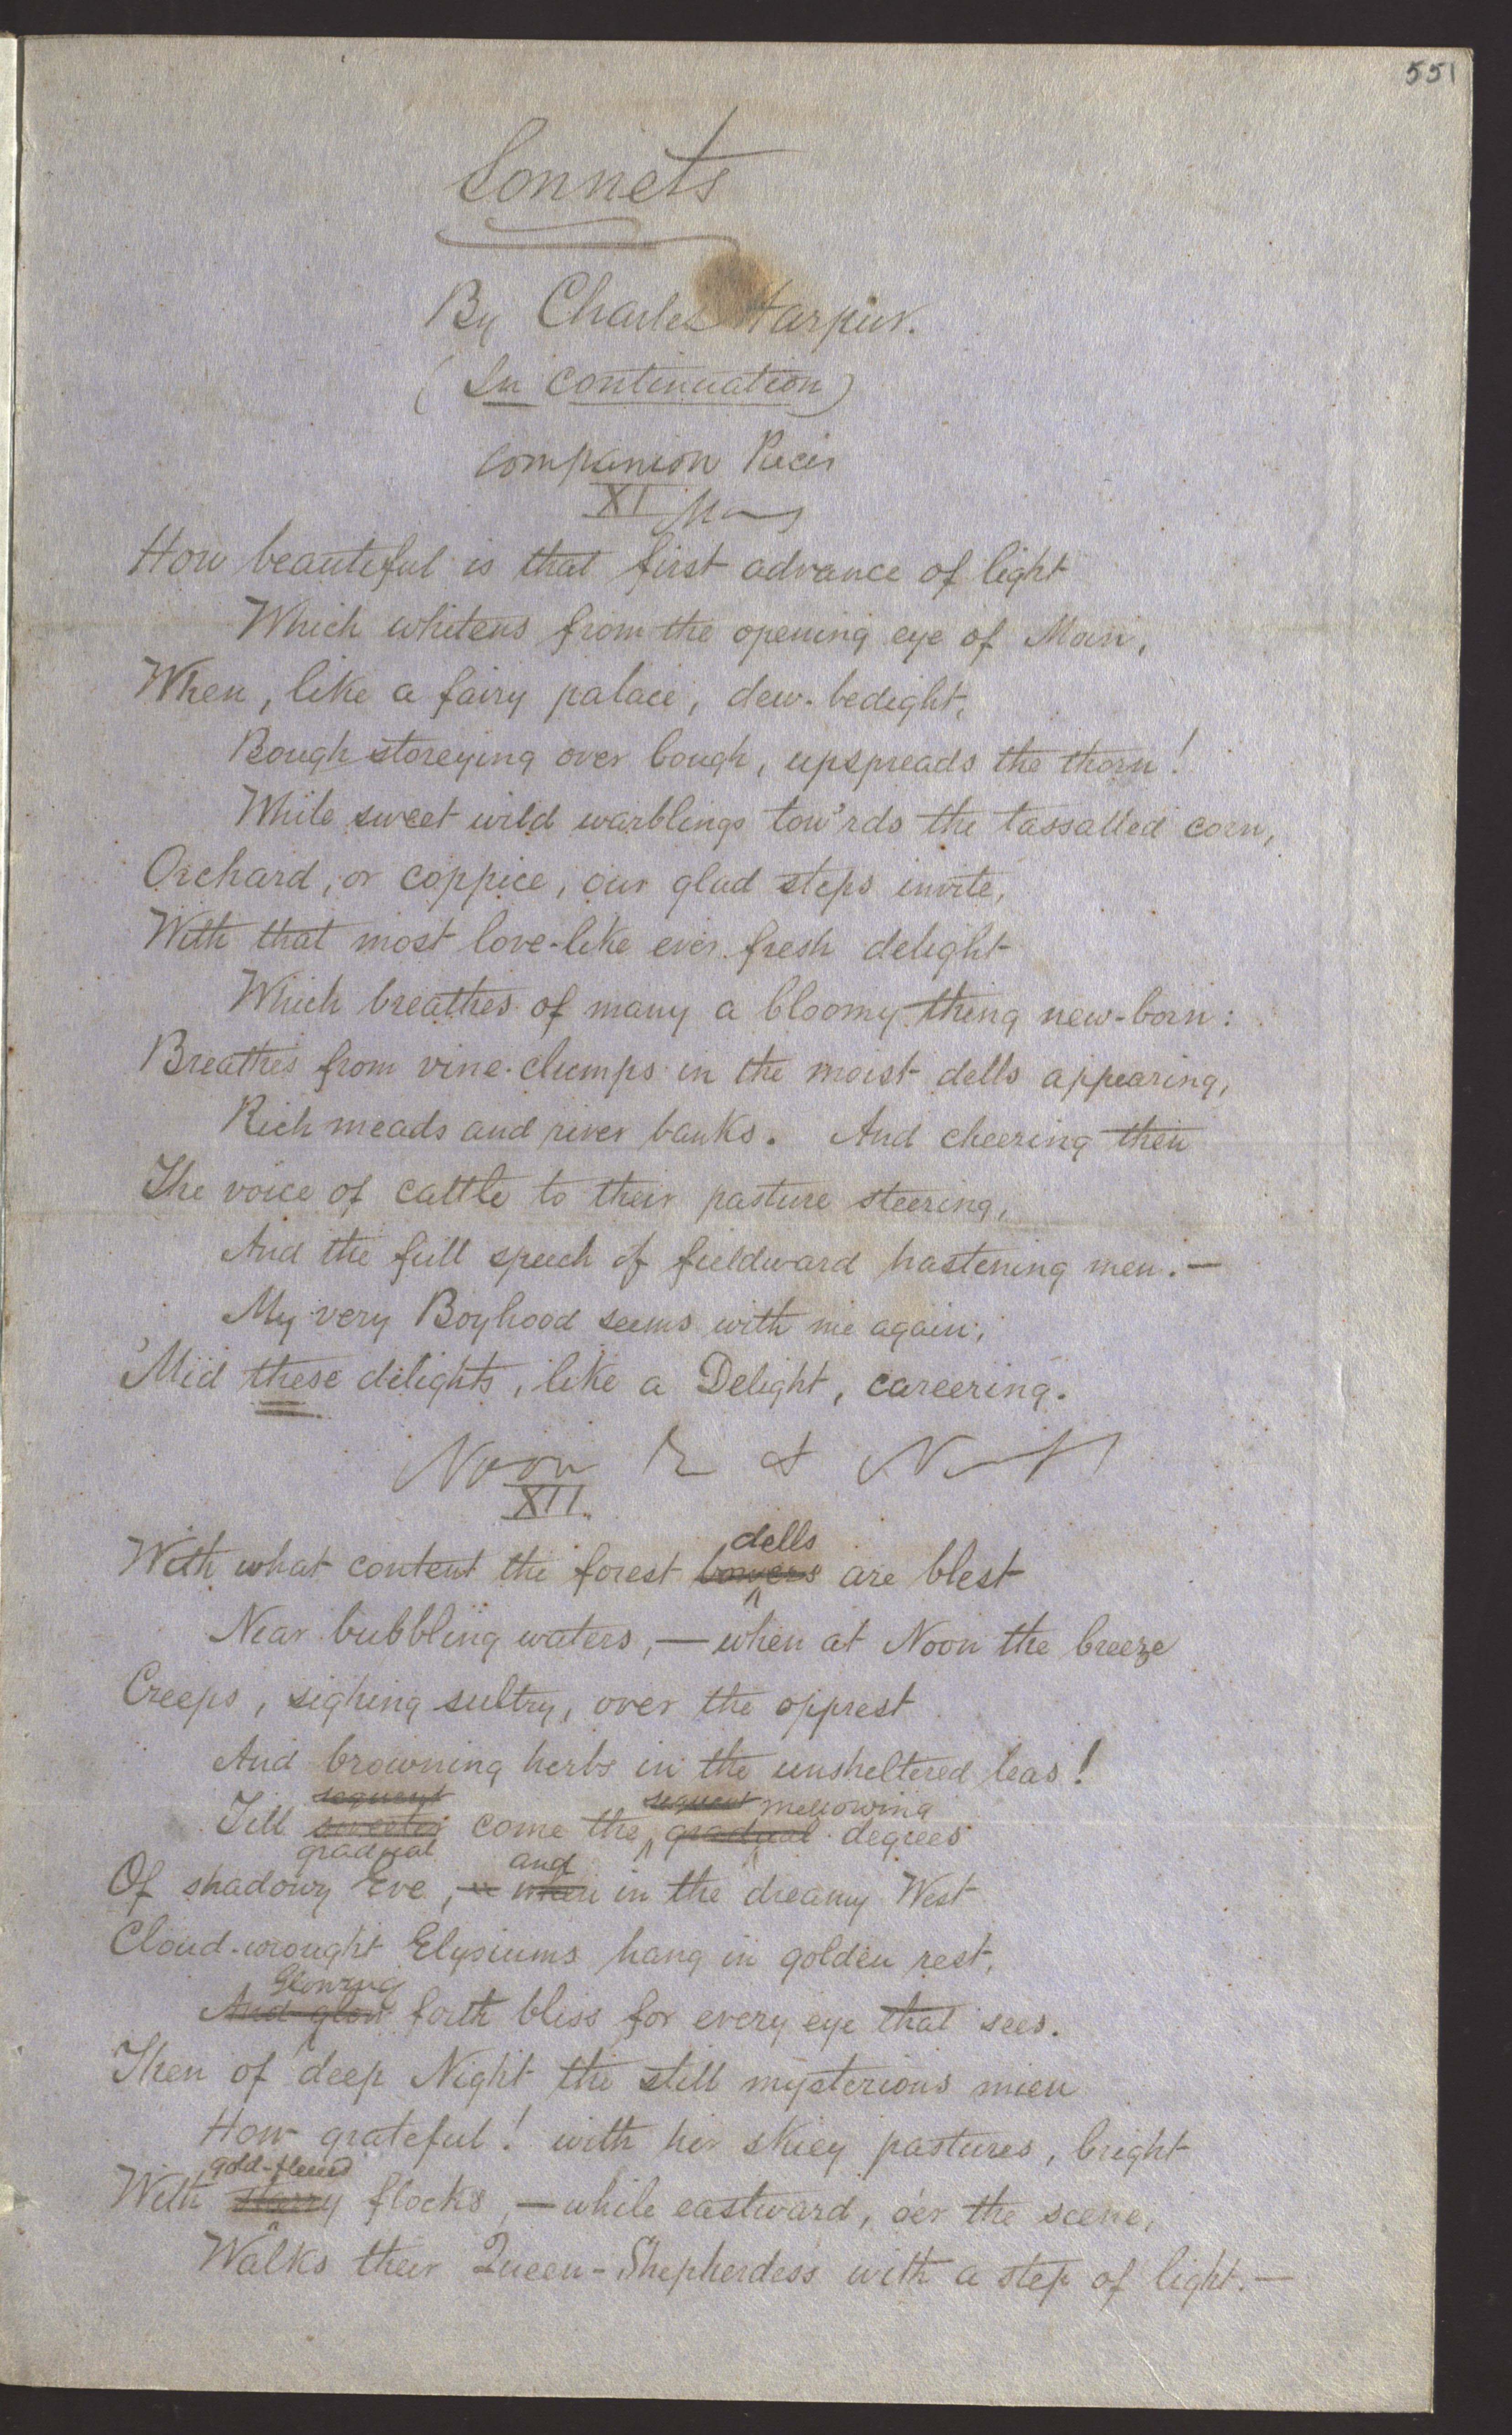 551
Sonnets
By Charles Harpur.
(In continuation)
Companion Pieces
XI
How beautiful is that first advance of light
Which whitens from the opening eye of Morn,
When, like a fairy palace, dew-bedight,
Bough storeying over bough, upspreads the thorn!
While sweet wild warblings tow'rds the tassalled corn,
Orchard, or coppice, our glad steps invite,
With that most love-like ever fresh delight
Which breathes of many a bloomy thing new-born:
Breathes from vine-clumps in the moist dells appearing,
Rich meads and river banks. And cheering then
The voice of cattle to their pasture steering,
And the full speech of fieldward hastening men.—
My very Boyhood seems with me again,
'Mid these delights, like a Delight, careering.
Noon & Night
XII.
dells
With what content the forest bowers are blest
Near bubbling waters,—when at Noon the breeze
Creeps, sighing sultry, over the opprest
And browning herbs in the unsheltered leas!
sequent sequent mellowing
Till sweetly come the gradual degrees
gradual and
Of shadowy Eve,— when in the dreamy West
Cloud-wrought Elysiums hang in golden rest,
Glowing
And glow forth bliss for every eye that sees.
Then of deep Night the still mysterious mien
How grateful! with her skiey pastures, bright
gold-fleeced
With starry flocks,—while eastward, o'er the scene,
Walks their Queen-Shepherdess with a step of light.—